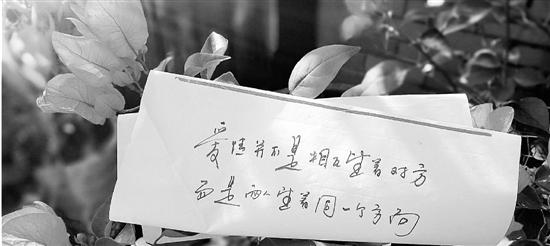 爱情并不是相互望着对方
而是两人望着同一个方向